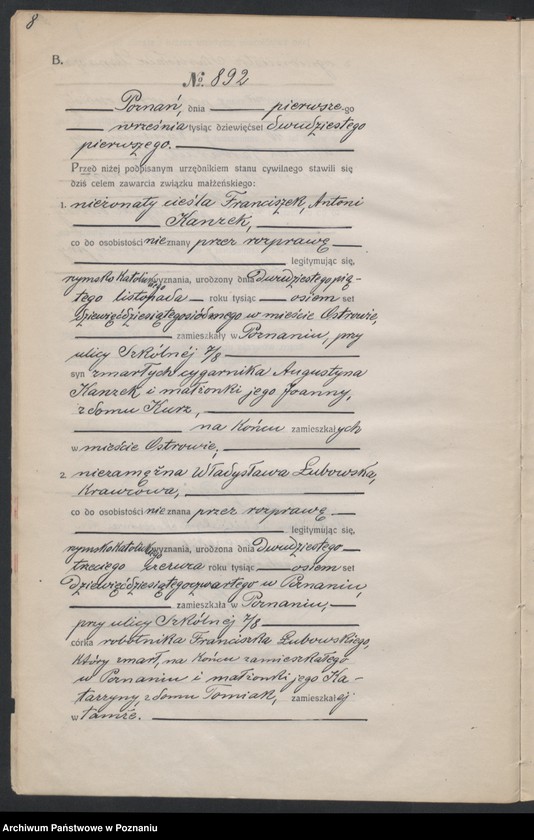 8
B.
№ 892
Poznań, dnia pierwsze-go
września tysiąc dziewięćset dwudziestego
pierwszego.
Przed niżej podpisanym urzędnikiem stanu cywilnego stawili się
dziś celem zawarcia związku małżeńskiego:
1. nieżonaty cieśla Franciszek, Antoni
Kanzek,
co do osobistości nieznany przez rozprawę
legitymując się,
rzymsko katolickiego wyznania, urodzony dnia Dwudziestego pią-
tego listopada roku tysiąc osiem set
Dziewięćdziesiątegosiódmego w mieście Ostrowie,
zamieszkały w Poznaniu, przy
ulicy Szkólnéj 7/8
syn zmarłych cygarnika Augustyna
Kanzek i małżonki jego Joanny,
z domu Kurz,
na końcu zamieszkałych
w mieście Ostrowie,
2. niezamężna Władysława Lubowska,
krawcowa,
co do osobistości nieznana przez rozprawę
legitymując się,
rzymsko katolickiego wyznania, urodzona dnia Dwudziestego
trzeciego czerwca roku tysiąc osiem set
Dziewięćdziesiątegoczwartego w Poznaniu,
zamieszkała w Poznaniu,
przy ulicy Szkólnéj 7/8
córka robotnika Franciszka Lubowskiego,
który zmarł, na końcu zamieszkałego
w Poznaniu i małżonki jego Ka-
tarzyny, z domu Tomiak, zamieszkałej
w tamże.
Archiwum Państwowe w Poznaniu